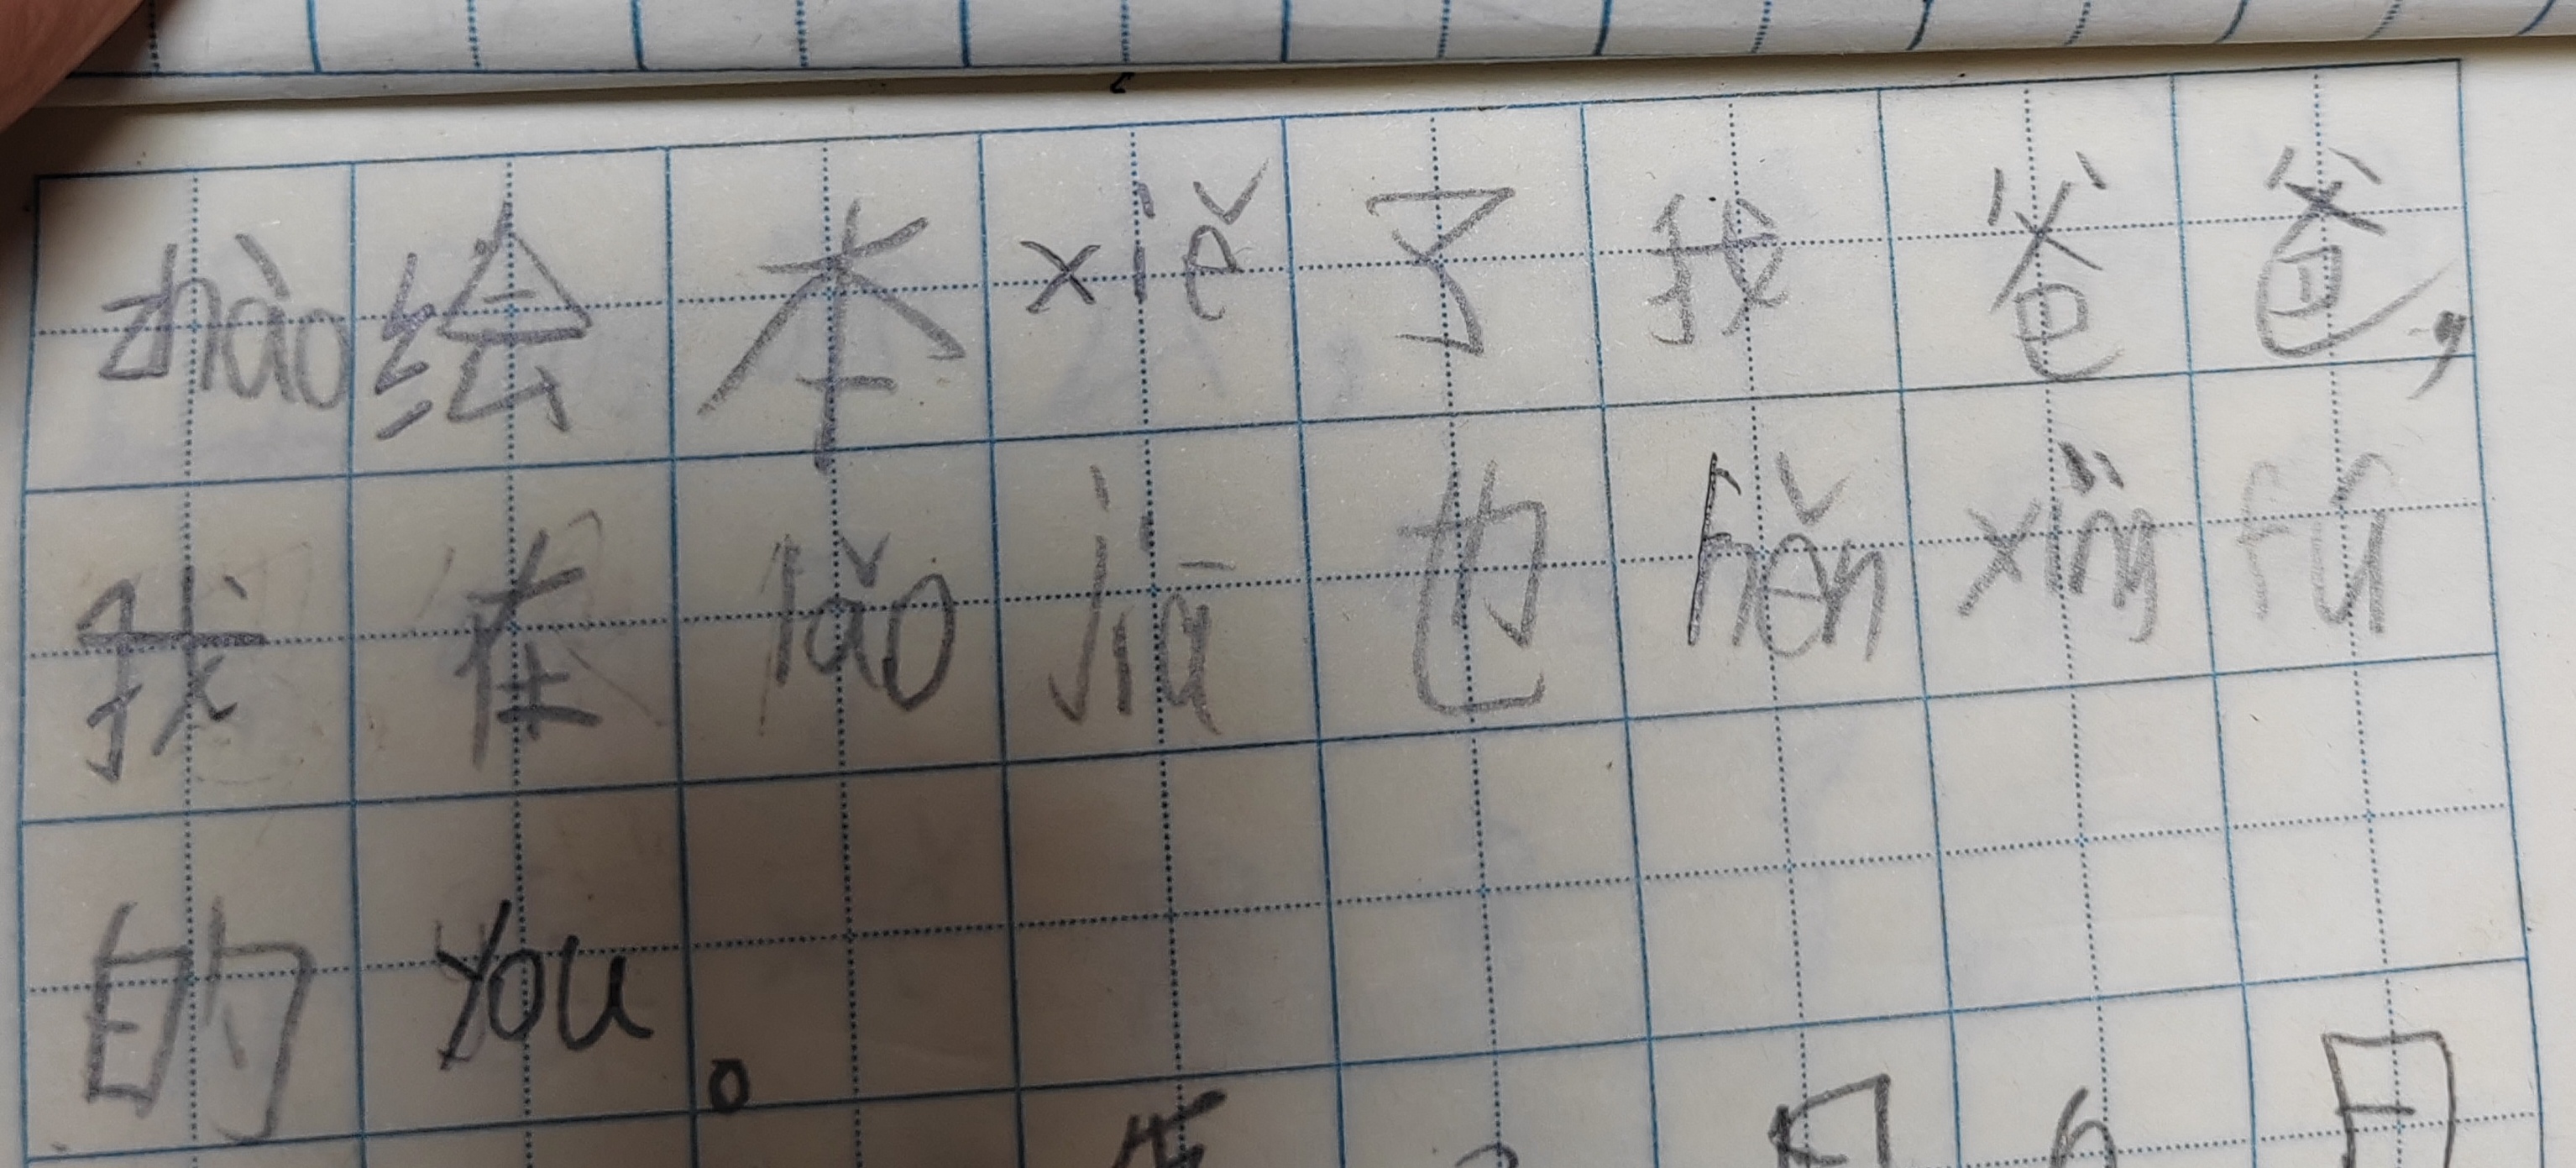 zhào绘本xiě了我爸爸,
我在lǎojiā也hěnxìngfú
的you。